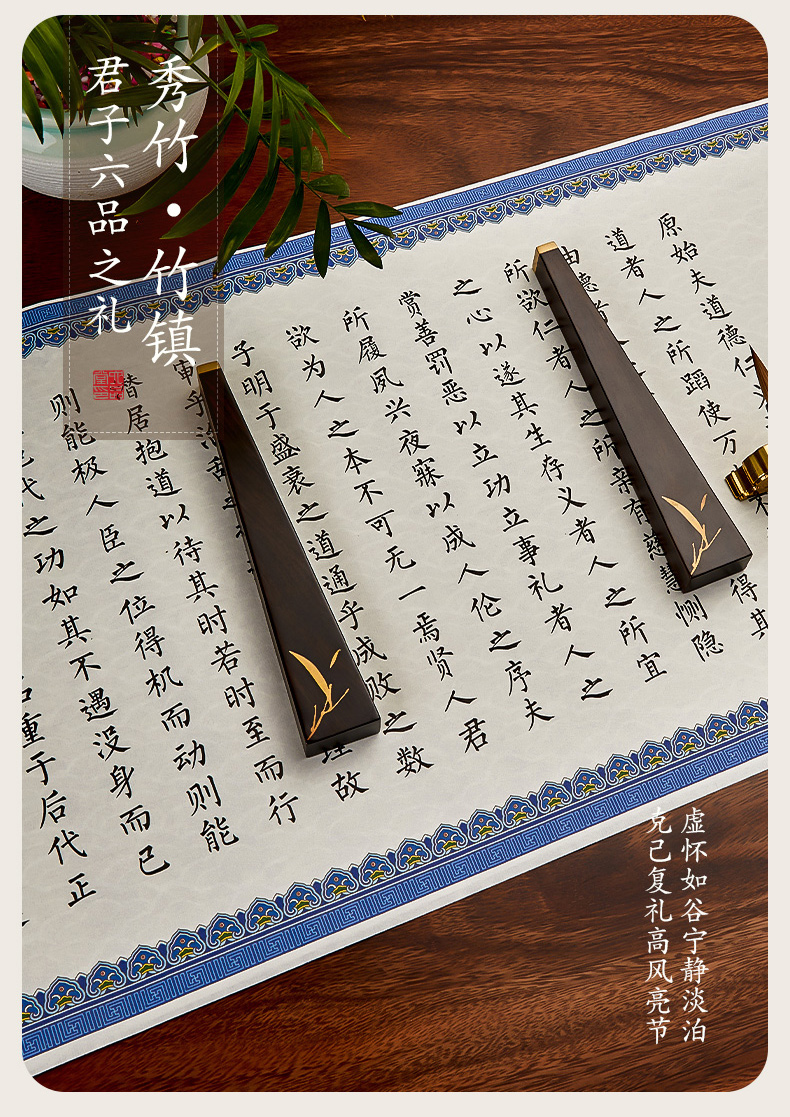 秀竹·竹镇
君子六品之礼
原始夫道德仁
道者人之所蹈使万
由德者
得其
所欲仁者人之所亲有慈慧恻隐
之心以遂其生存义者人之所宜
赏善罚恶以立功立事礼者人之
所履夙兴夜寐以成人伦之序夫
欲为人之本不可无一焉贤人君
子明于盛衰之道通乎成败之数
审乎
理故
居抱道以待其时若时至而行
则能极人臣之位得机而动则能
代之功如其不遇没身而已
重于后代正
虚怀如谷宁静淡泊
克己复礼高风亮节